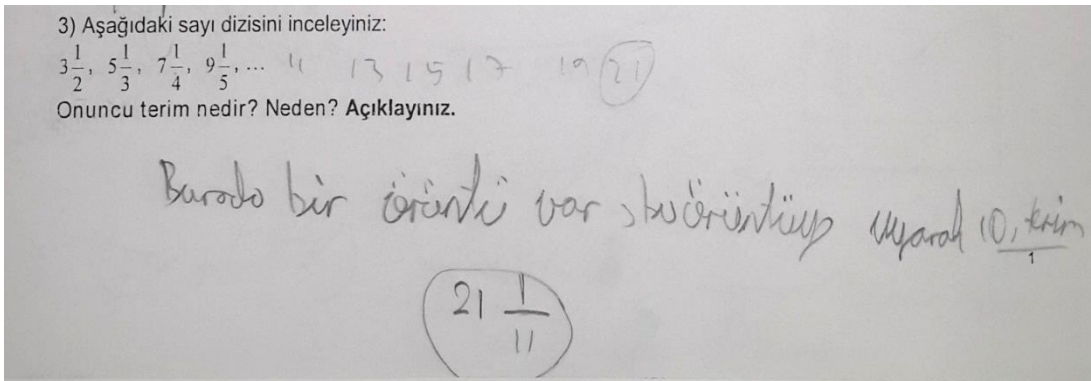 3) Aşağıdaki sayı dizisini inceleyiniz:
3 1/2, 5 1/3, 7 1/4, 9 1/5, ... 11 13 15 17 19 21
Onuncu terim nedir? Neden? Açıklayınız.
Burada bir örüntü var, bu örüntüye uyarak 10. terim
1
21 1/11